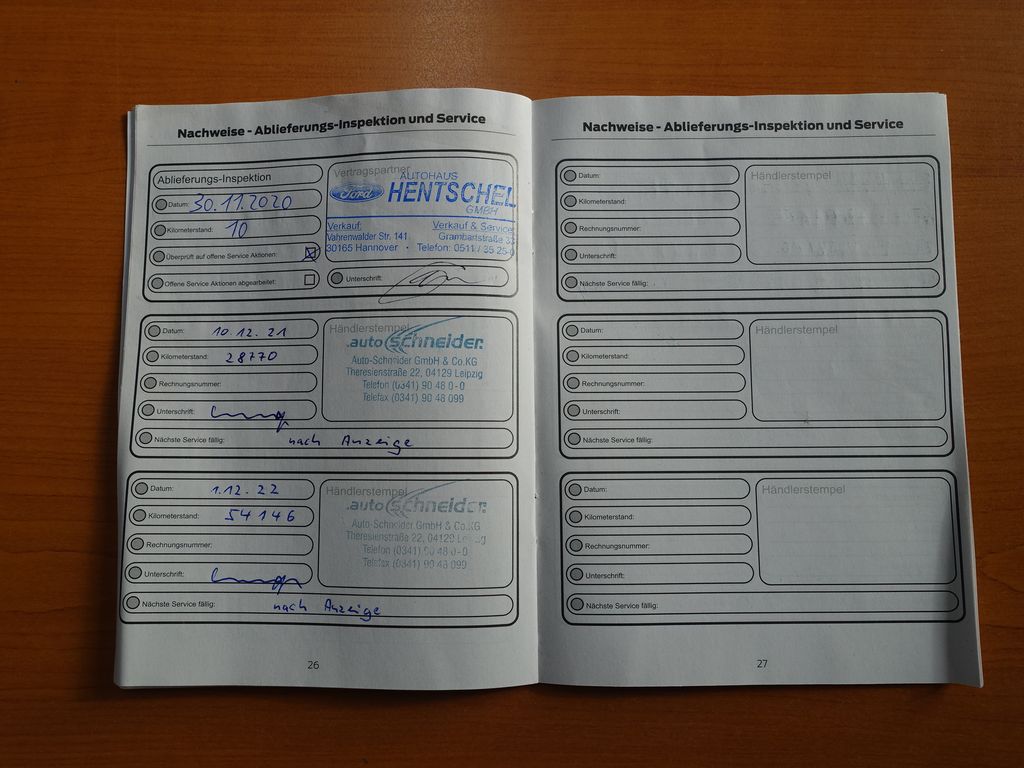 Nachweise - Ablieferungs-Inspektion und Service
Ablieferungs-Inspektion
Datum: 30.11.2020
Kilometerstand: 10
Überprüft auf offene Service Aktionen:
Offene Service Aktionen abgearbeitet:
Vertragspartner
AUTOHAUS
Ford HENTSCHEL
GMBH
Verkauf: Verkauf & Service
Vahrenwalder Str. 141 Grambartstraße
30165 Hannover · Telefon: 0511 / 35 25-0
Unterschrift:
Datum: 10.12.21
Kilometerstand: 28770
Rechnungsnummer:
Unterschrift:
Händlerstempel
auto schneider
Auto-Schneider GmbH & Co.KG
Theresienstraße 22, 04129 Leipzig
Telefon (0341) 90 48 0-0
Telefax (0341) 90 48 099
Nächste Service fällig: nach Anzeige
Datum: 1.12.22
Kilometerstand: 54146
Rechnungsnummer:
Unterschrift:
Händlerstempel
auto schneider
Auto-Schneider GmbH & Co.KG
Theresienstraße 22, 04129 Leipzig
Telefon (0341) 90 48 0-0
Telefax (0341) 90 48 099
Nächste Service fällig: nach Anzeige
26
Nachweise - Ablieferungs-Inspektion und Service
Datum:
Kilometerstand:
Rechnungsnummer:
Unterschrift:
Händlerstempel
Nächste Service fällig:
Datum:
Kilometerstand:
Rechnungsnummer:
Unterschrift:
Händlerstempel
Nächste Service fällig:
Datum:
Kilometerstand:
Rechnungsnummer:
Unterschrift:
Händlerstempel
Nächste Service fällig:
27